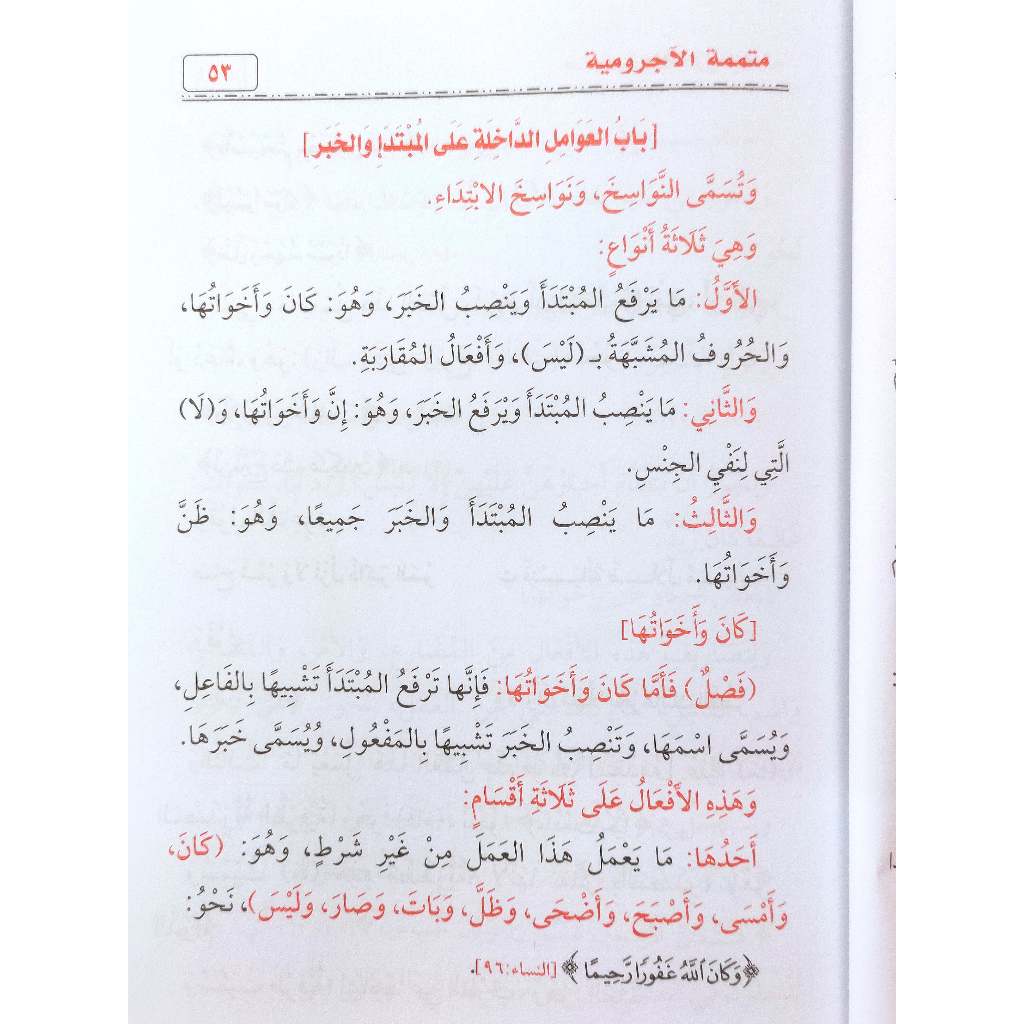 متممة الآجرومية
٥٣
[بَابُ العَوَامِلِ الدَّاخِلَةِ عَلَى المُبْتَدَإِ وَالخَبَرِ]
وَتُسَمَّى النَّوَاسِخَ، وَنَوَاسِخَ الابْتِدَاءِ.
وَهِيَ ثَلَاثَةُ أَنْوَاعٍ:
الأَوَّلُ: مَا يَرْفَعُ المُبْتَدَأَ وَيَنْصِبُ الخَبَرَ، وَهُوَ: كَانَ وَأَخَوَاتُهَا،
وَالحُرُوفُ المُشَبَّهَةُ بـ (لَيْسَ)، وَأَفْعَالُ المُقَارَبَةِ.
وَالثَّانِي: مَا يَنْصِبُ المُبْتَدَأَ وَيَرْفَعُ الخَبَرَ، وَهُوَ: إِنَّ وَأَخَوَاتُهَا، وَ(لَا)
الَّتِي لِنَفْيِ الجِنْسِ.
وَالثَّالِثُ: مَا يَنْصِبُ المُبْتَدَأَ وَالخَبَرَ جَمِيعًا، وَهُوَ: ظَنَّ
وَأَخَوَاتُهَا.
[كَانَ وَأَخَوَاتُهَا]
(فَصْلٌ) فَأَمَّا كَانَ وَأَخَوَاتُهَا: فَإِنَّها تَرْفَعُ المُبْتَدَأَ تَشْبِيهًا بِالفَاعِلِ،
وَيُسَمَّى اسْمَهَا، وَتَنْصِبُ الخَبَرَ تَشْبِيهًا بِالمَفْعُولِ، وَيُسَمَّى خَبَرَهَا.
وَهَذِهِ الأَفْعَالُ عَلَى ثَلَاثَةِ أَقْسَامٍ:
أَحَدُهَا: مَا يَعْمَلُ هَذَا العَمَلَ مِنْ غَيْرِ شَرْطٍ، وَهُوَ: (كَانَ،
وَأَمْسَى، وَأَصْبَحَ، وَأَضْحَى، وَظَلَّ، وَبَاتَ، وَصَارَ، وَلَيْسَ)، نَحْوُ:
﴿وَكَانَ ٱللَّهُ غَفُورًا رَّحِيمًا﴾ [النساء:٩٦].